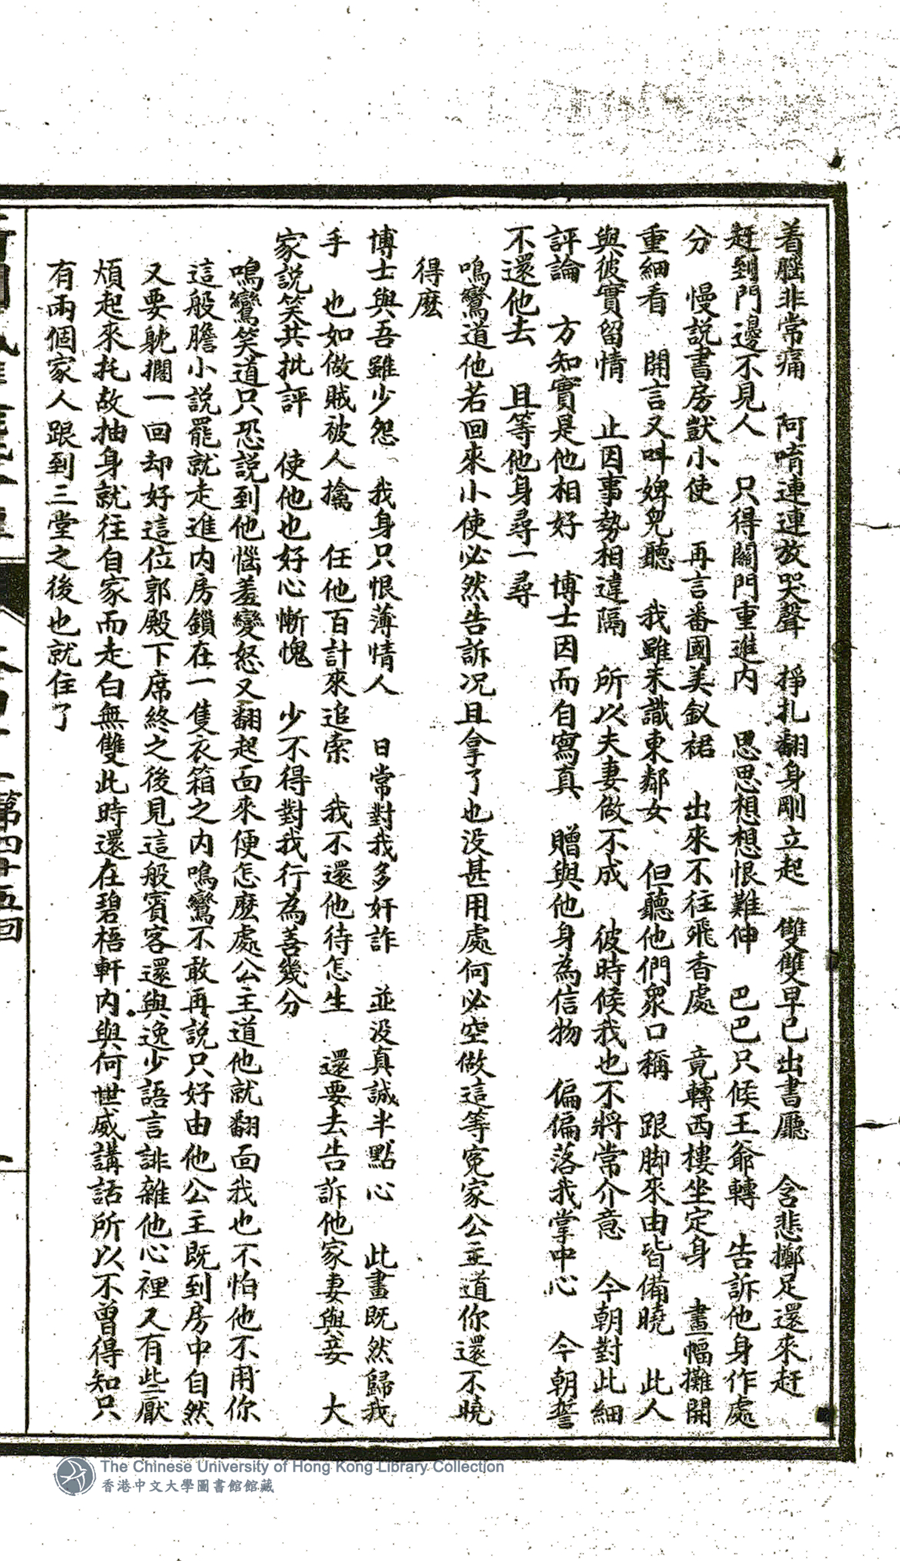 着腦非常痛　阿唷連連放哭聲　掙扎翻身剛立起　雙雙早已出書廳　含悲擲足還來赶
赶到門邊不見人　只得關門重進內　思思想想恨難伸　巴巴只候王爺轉　告訴他身作處
分　慢說書房獃小使　再言番國美釵裙　出來不往飛香處　竟轉西樓坐定身　畫幅攤開
重細看　開言又呌婢皃聽　我雖未識東鄰女　但聽他們衆口稱　跟脚來由皆備曉　此人
與彼實留情　止因事勢相違隔　所以夫妻做不成　彼時候我也不將常介意　今朝對此細
評論　方知實是他相好　博士因而自寫真　贈與他身為信物　偏偏落我掌中心　今朝誓
不還他去　且等他身尋一尋
鳴鸞道他若回來小使必然告訴况且拿了也没甚用處何必空做這等寃家公主道你還不曉
得麽
博士與吾雖少怨　我身只恨薄情人　日常對我多奸詐　並没真誠半點心　此畫既然歸我
手　也如做賊被人擒　任他百計來追索　我不還他待怎生　還要去告訴他家妻與妾　大
家説笑共批評　使他也好心慚愧　少不得對我行為善幾分
鳴鸞笑道只恐説到他惱羞變怒又翻起面來便怎麽處公主道他就翻面我也不怕他不用你
這般膽小説罷就走進內房鎖在一隻衣箱之內鳴鸞不敢再説只好由他公主既到房中自然
又要躭擱一回却好這位郭殿下席終之後見這般賓客還與逸少語言誹雜他心裡又有些厭
煩起來托故抽身就往自家而走白無雙此時還在碧梧軒內與何世威講話所以不曾得知只
有兩個家人跟到三堂之後也就住了
第四十五回
The Chinese University of Hong Kong Library Collection
香港中文大學圖書館館藏